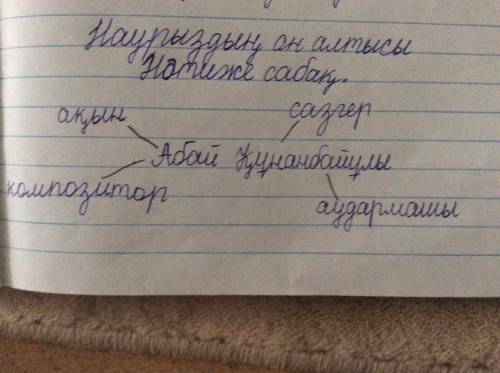 Наурыздың он алтысы
Нәтиже сабақ.
ақын сазгер
Абай Құнанбайұлы
композитор
аудармашы